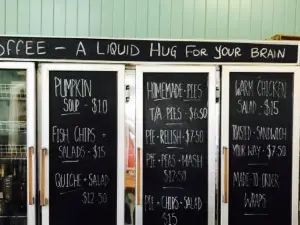 COFFEE - A LIQUID HUG FOR YOUR BRAIN
PUMPKIN
SOUP - $10
FISH CHIPS +
SALADS - $15
QUICHE + SALAD
$12.50
HOMEMADE PIES
T/A PIES - $6.50
PIE + RELISH - $7.50
PIE + PEAS + MASH
$12.50
PIE + CHIPS + SALAD
$15
WARM CHICKEN
SALAD - $15
TOASTED SANDWICH
YOUR WAY - $7.50
MADE TO ORDER
WRAPS